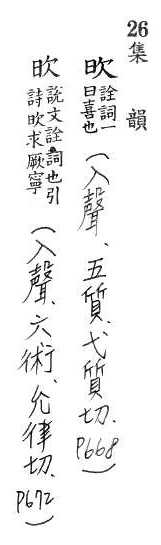 26 集 韻
欥 詮詞一曰喜也 (入聲、五質、弋質切. P668)
欥 說文詮詞也引詩欥求厥寧 (入聲、六術、允律切. P672)